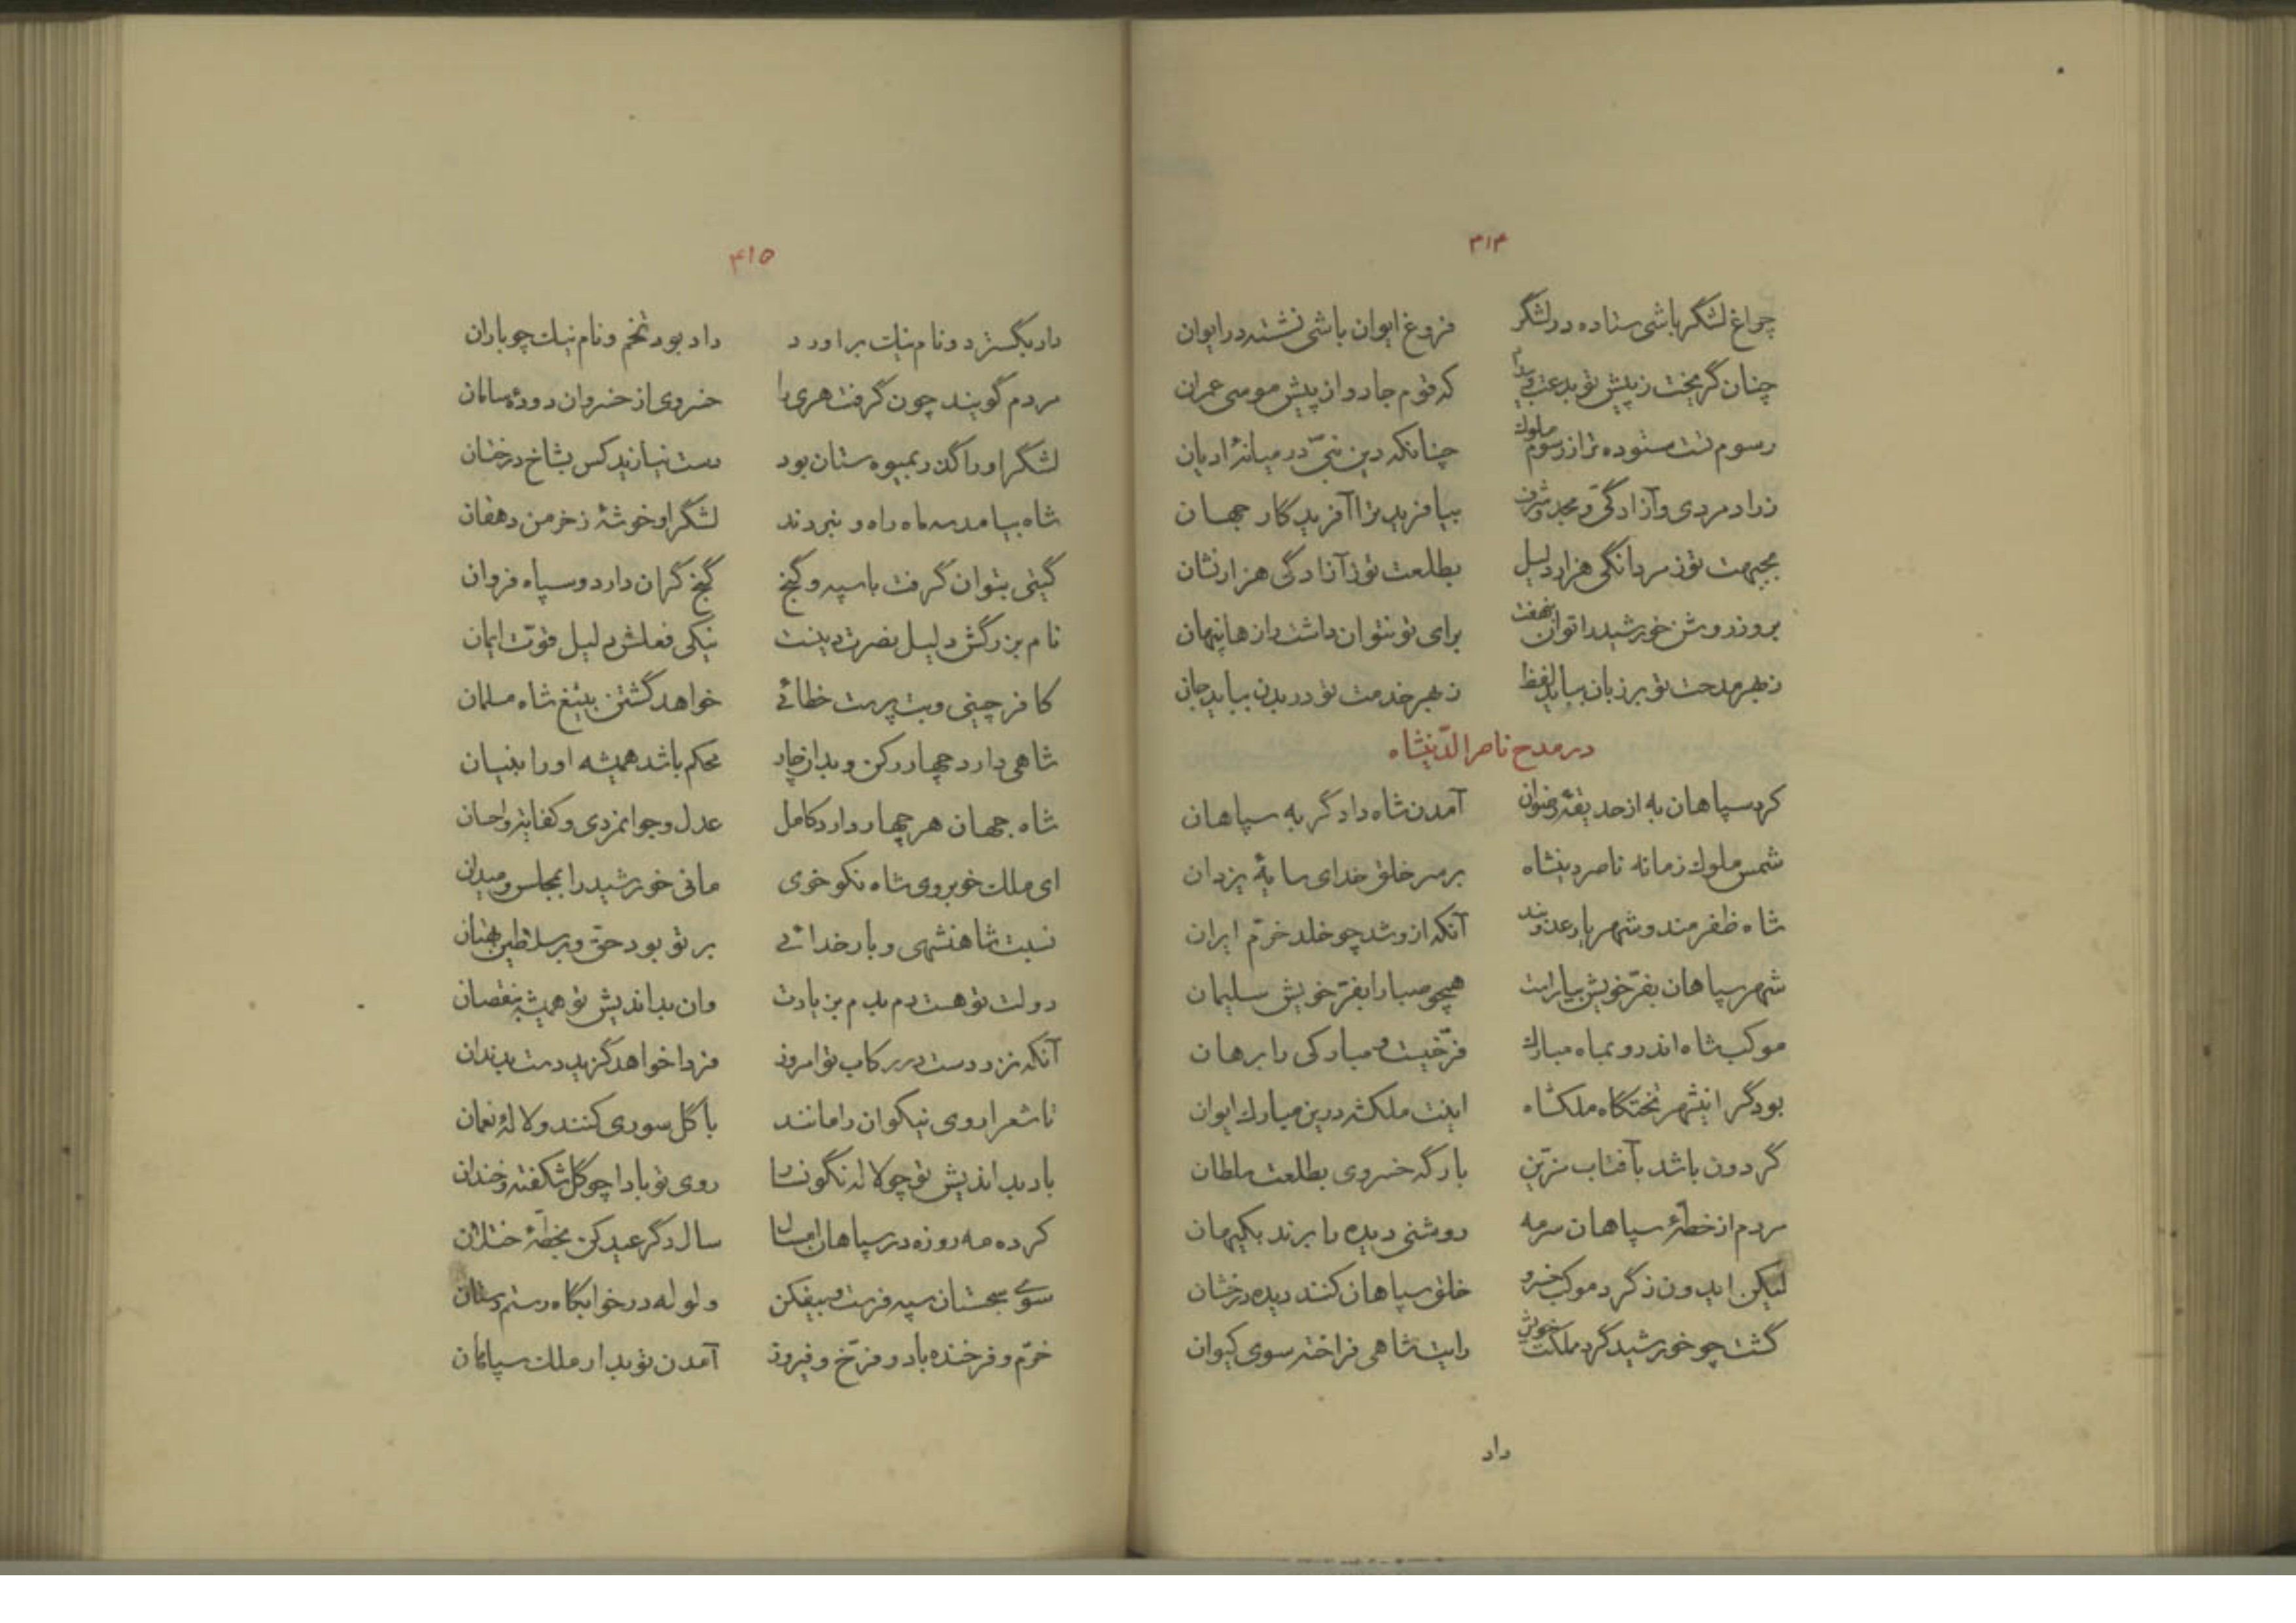 ۴۱۴
چراغ لشگر باشی ستاده در لشگر فروغ ایوان باشی نشسته در ایوان
چنان گریخت ز پیش تو بدعت و بیداد که قوم جادو از پیش موسی عمران
رسوم تست ستوده تر از رسوم ملوک چنانکه دین نبیّ در میانهٔ ادیان
ز رادمردی و آزادگیّ و مجد و شرف بیافرید ترا آفریدگار جهان
بجبهت تو ز مردانگی هزار دلیل بطلعت تو ز آزادگی هزار نشان
بروز روشن خورشید را توان نهفت برای تو نتوان داشت رازها پنهان
ز بهر مدحت تو بر زبان بباید لفظ ز بهر خدمت تو در بدن بباید جان
در مدح ناصر الدّینشاه
کرد سپاهان به از حدیقهٔ رضوان آمدن شاه دادگر به سپاهان
شمس ملوک زمانه ناصر دینشاه بر سر خلق خدای سایهٔ یزدان
شاه ظفرمند و شهریار عدوبند آنکه ازو شد چو خلد خرّم ایران
شهر سپاهان بفرّ خویش بیاراست همچو صبا را بفرّ خویش سلیمان
موکب شاه اندرو بماه مبارک فرّخیست و مبارکی را برهان
بود گر اینشهر تختگاه ملکشاه اینت ملکشه درین مبارک ایوان
گردون باشد بآفتاب مزیّن بارگه خسروی بطلعت سلطان
مردم از خطّهٔ سپاهان سرمه روشنی دیده را برند بکیهان
لیکن ایدون ز گرد موکب خسرو خلق سپاهان کنند دیده درخشان
گشت چو خورشید گرد مملکت خویش رایت شاهی فراخته سوی کیوان
داد
۴۱۵
داد بگسترد و نام نیک برآورد داد بود تخم و نام نیک چو باران
مردم گویند چون گرفت هری را خسروی از خسروان دودهٔ سامان
لشگر او را گذر بمیوه ستان بود دست نیازید کس بشاخ درختان
شاه بیامد سه ماه راه و نبردند لشگر او خوشهٔ ز خرمن دهقان
گیتی بتوان گرفت با سپه و گنج گنج گران دارد و سپاه فروان
نام بزرگش دلیل نصرت دینست نیکی فعلش دلیل قوّت ایمان
کافر چینی و بت پرست خطائی خواهد گشتن بتیغ شاه مسلمان
شاهی دارد چهار رکن و بدان چار محکم باشد همیشه او را بنیان
شاه جهان هر چهار دارد کامل عدل و جوانمردی و کفایت و احسان
ای ملک خوبروی شاه نکوخوی مانی خورشید را بمجلس و میدان
نسبت شاهنشهی و بارخدائی بر تو بود حقّ و بر سلاطین بهتان
دولت تو هست دم بدم بزیادت وان بداندیش تو همیشه بنقصان
آنکه نزد دست در رکاب تو امروز فردا خواهد گزید دست بدندان
تا شعرا روی نیکوان را مانند با گل سوری کنند و لالهٔ نعمان
باد بداندیش تو چو لاله نگونسا روی تو بادا چو گل شکفته و خندان
کرده مه روزه در سپاهان امسال سال دگر عید کن بخطّهٔ ختلان
سوی سجستان سپه فرست و بیفکن ولوله در خوابگاه رستم دستان
خرّم و فرخنده باد و فرّخ و فیروز آمدن تو بدار ملک سپاهان